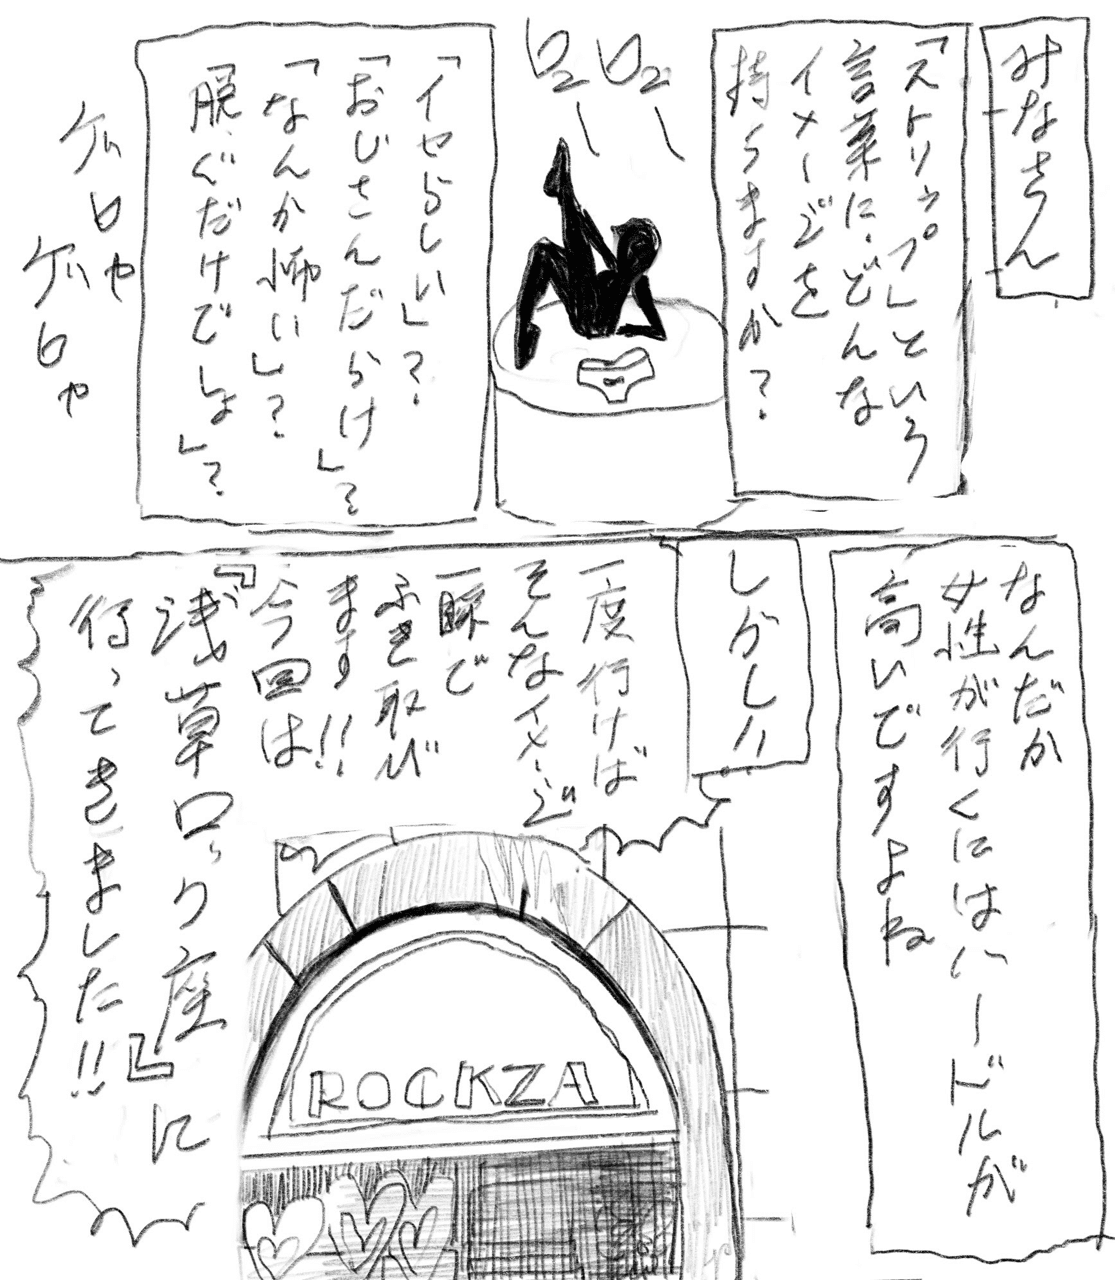 みなさん
「ストリップ」という
言葉に、どんな
イメージを
持ちますか?
ロロ
「イヤらしい」?
「おじさんだらけ」?
「なんか怖い」?
「脱ぐだけでしょ」?
ゲロゲロ
なんだか
女性が行くにはハードルが
高いですよね
しかし!!
一度行けば
そんなイメージ
一瞬で
ふき取び
ます!!
今回は
『浅草ロック座』に
行ってきました!!
ROCKZA